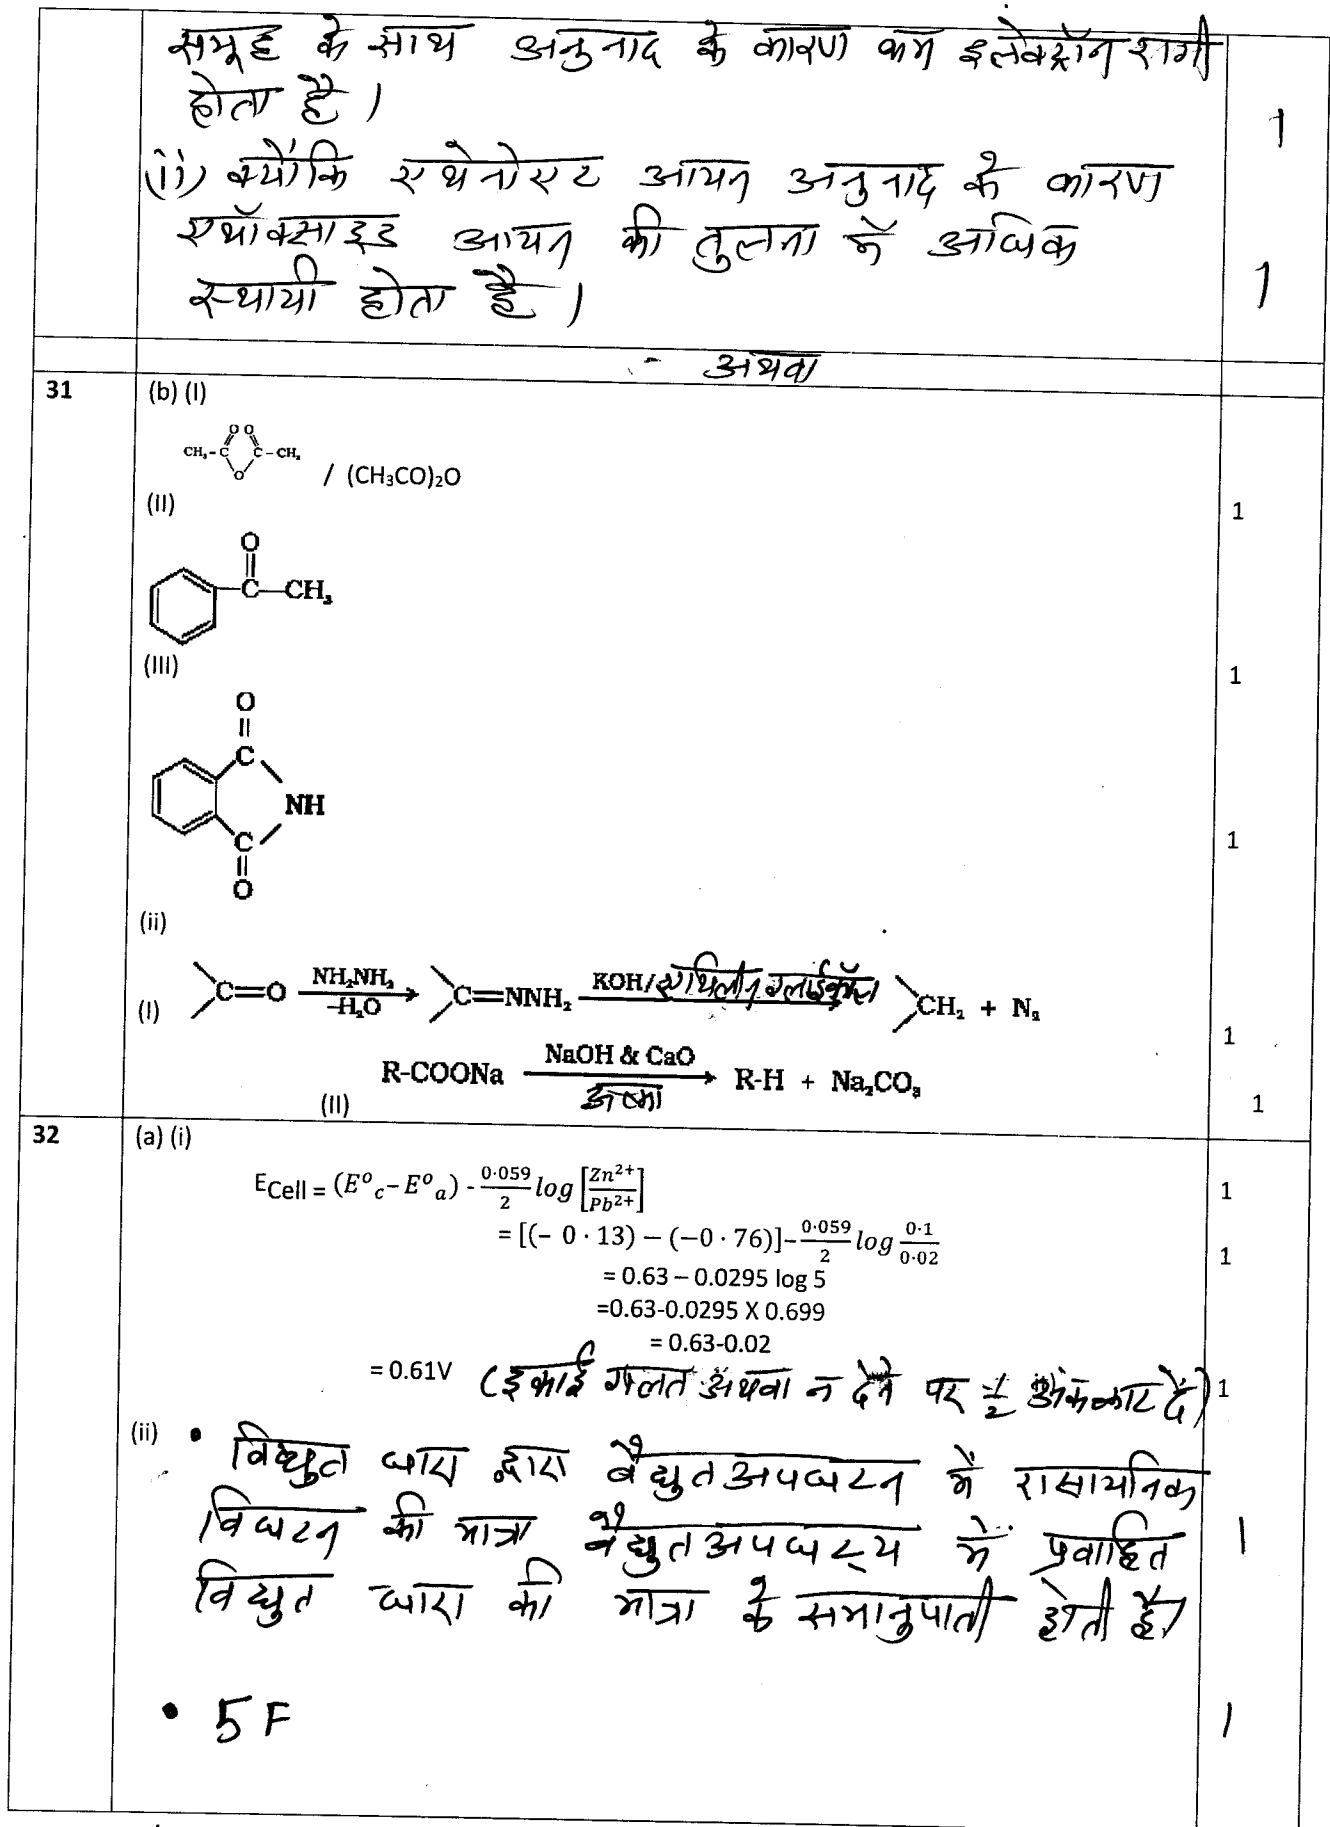 समूह के साथ अनुनाद के कारण कम इलेक्ट्रॉनरागी
होता है।
1
(ii) क्योंकि एथेनोएट आयन अनुनाद के कारण
एथॉक्साइड आयन की तुलना में अधिक
स्थायी होता है।
1
अथवा
31 (b) (I)
O O
CH₃-C C-CH₃
O / (CH₃CO)₂O
(II) 1
O
C—CH₃
(III) 1
O
C
NH 1
C
O
(ii)
(I) C=O NH₂NH₂ −H₂O → C=NNH₂ KOH/एथिलीन ग्लाईकॉल → CH₂ + N₂ 1
(II) R-COONa NaOH & CaO ऊष्मा → R-H + Na₂CO₃ 1
32 (a) (i)
ECell = (E°c − E°a) - 0·059/2 log [Zn²⁺/Pb²⁺] 1
= [(− 0·13) − (−0·76)] − 0·059/2 log 0·1/0·02 1
= 0.63 – 0.0295 log 5
=0.63-0.0295 X 0.699
= 0.63-0.02
= 0.61V (इकाई गलत अथवा न देने पर ½ अंक काट दें) 1
(ii) • विद्युत धारा द्वारा वैद्युतअपघटन में रासायनिक
विघटन की मात्रा वैद्युतअपघट्य में प्रवाहित 1
विद्युत धारा की मात्रा के समानुपाती होती है।
• 5 F 1